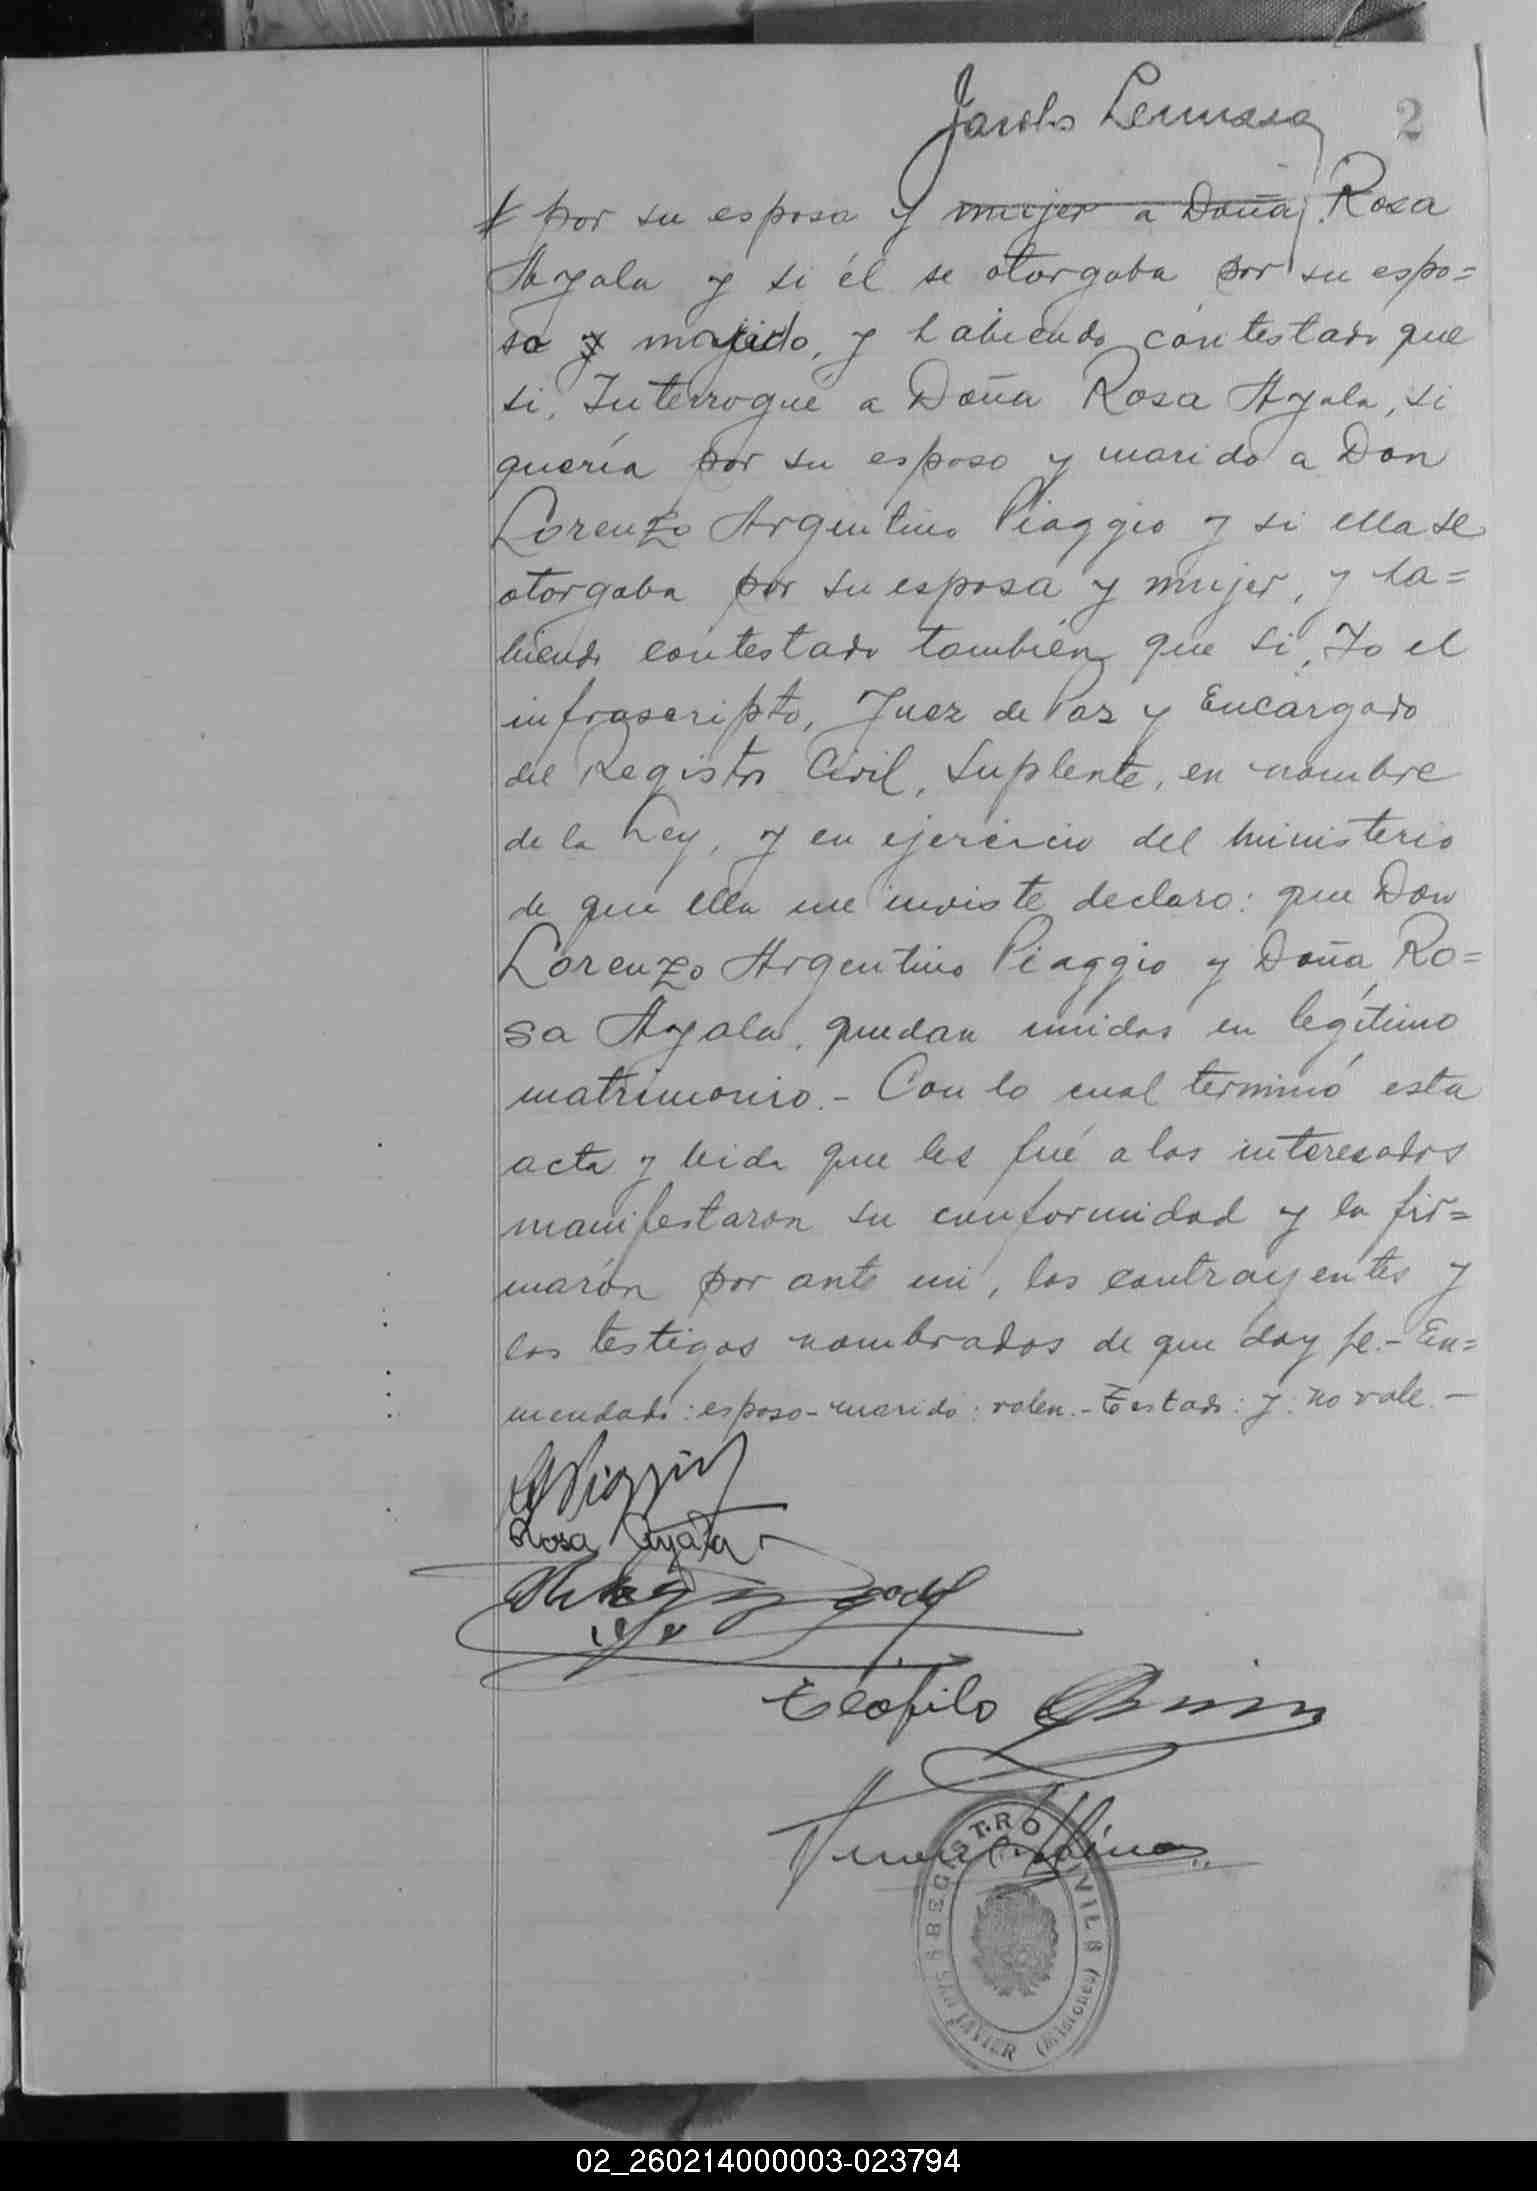 2
y por su esposa y mujer a Doña Rosa
Ayala y si él se otorgaba por su espo=
so y marido, y habiendo contestado que
si, Interrogué a Doña Rosa Ayala, si
quería por su esposo y marido a Don
Lorenzo Argentino Piaggio y si ella se
otorgaba por su esposa y mujer, y ha=
biendo contestado también que si, Yo el
infrascripto, Juez de Paz y Encargado
del Registro Civil, Suplente, en nombre
de la Ley, y en ejercicio del ministerio
de que ella me inviste declaro: que Don
Lorenzo Argentino Piaggio y Doña Ro=
sa Ayala, quedan unidos en legítimo
matrimonio.- Con lo cual terminó esta
acta y leida que les fué a los interesados
manifestaron su conformidad y la fir=
marón por ante mi, los contrayentes y
los testigos nombrados de que doy fe.- En=
mendado: esposo-marido: valen.- Testado: y: no vale.-
Piaggio
Rosa Ayala
Teófilo
REGISTRO CIVIL
SAN JAVIER (Misiones)
02_260214000003-023794